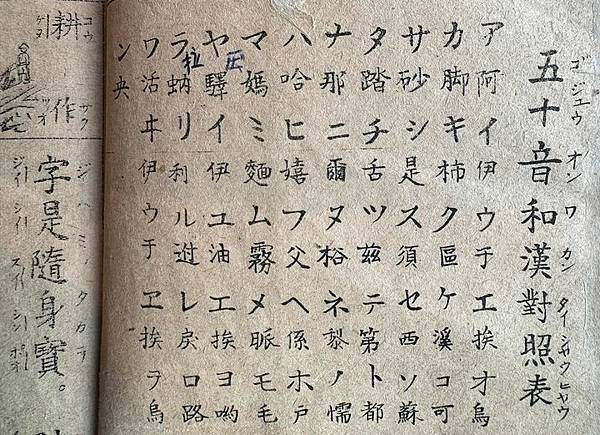 五十音和漢對照表
ゴジュウオンワカンタイシャウヒャウ
ア阿イ伊ウ于エ挨オ烏
カ脚キ柿ク區ケ溪コ可
サ砂シ是ス須セ西ソ蘇
タ踏チ舌ツ茲テ第ト都
ナ那ニ爾ヌ裕ネ黎ノ懦
ハ哈ヒ嬉フ父ヘ係ホ戸
マ媽ミ麵ム霧メ脈モ毛
ヤ驛イ伊ユ油エ挨ヨ喲
ラ蚋リ利ルレ戻ロ路
ワ活ヰ伊ウ于ヱ挨ヲ烏
ン央
拉
耕作
コウサク
字是隨身寶。